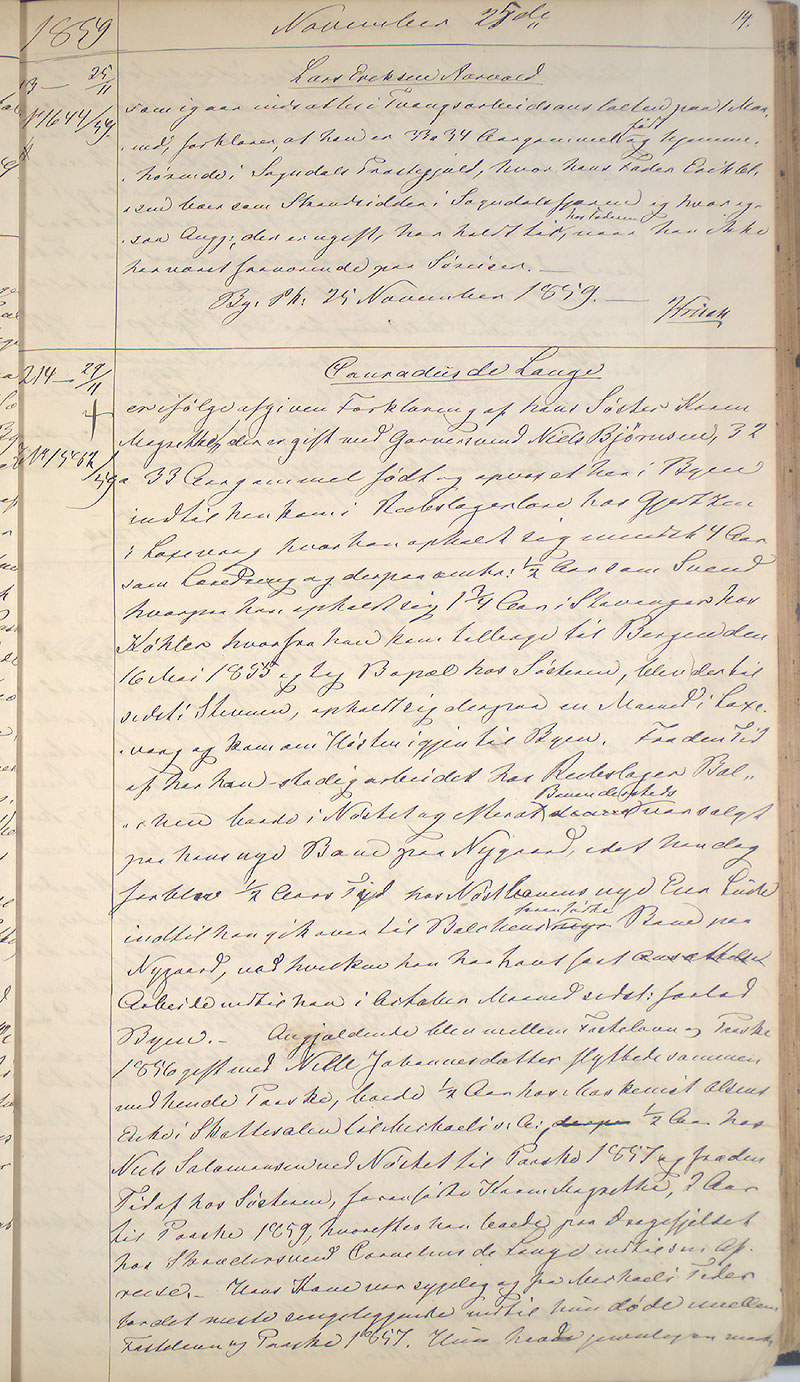 1859 November 25de 14.
13 — 25/11 Lars Eriksen Aarvold
No 1644/59. som igaar indsattes i Tvangsarbeidsanstalten paa 1 Maa-
ned, forklarer, at han er 33 a 34 Aar gammel født og hjemme-
hørende i Sogndals Præstegjæld, hvor hans Fader Erik
boer som Strandsidder i Sogndalsfjæren og hvor og-
saa Angj:, der er ugift, har holdt til hos Faderen, naar han ikke
har været fraværende paa Søreiser. —
By: Ph: 25 November 1859. —
214 — 29/11 Conradus de Lange
er ifølge afgiven Forklaring af hans Søster Karen
Magrethe, der er gift med Garversvend Niels Bjørnsen, 32
a 33 Aar gammel født og opvoxet her i Byen
indtil han kom i Rebslagerlære hos Gjertsen
i Laxevaag hvor han opholdt sig mindst 4 Aar
som Læredreng og derpaa omtr: 1/2 Aar som Svend
hvorpaa han opholdt sig 1 3/4 Aar i Stavanger hos
Køhler hvorfra han kom tilbage til Bergen den
16 Mai 1855 og tog Bopæl hos Søsteren, blev der til
sidst i Sommer, opholdt sig derpaa en Maaned i Laxe-
vaag og kom om Høsten igjen til Byen. Fra den Tid
af har han stadig arbeidet hos Rebslager Bal-
chen baade i Nøstet og efterat Banen dersteds var solgt
paa hans nye Bane paa Nygaard, idet han dog
forblev 1/2 Aars Tid hos Nøstbanens nye Eier
indtil han gik over til Balchens foranførte Bane paa
Nygaard, ved hvilken han har havt fast
Arbeide indtil han i October Maaned sidst: forlod
Byen. — Angjældende blev mellem Fastelavn og Paaske
1856 gift med Nille Johannesdatter flyttede sammen
med hende Paaske, boede 1/2 Aar hos Maskenist Olsens
Enke i Skottesalen til Michaeli s: A:, 1/2 Aar hos
Niels Salamonsen ved Nøstet til Paaske 1857 og fra den
Tid af hos Søsteren, foranførte Karen Magrethe, 2 Aar
til Paaske 1859, hvorefter han boede paa Dragefjeldet
hos Skrædersvend Cornelius de Lange indtil sin Af-
reise. — Hans Kone var sygelig og fra Michaeli Tider
for det meste sengeliggende indtil hun døde mellem
Fastelavn og Paaske 1857. Hun havde